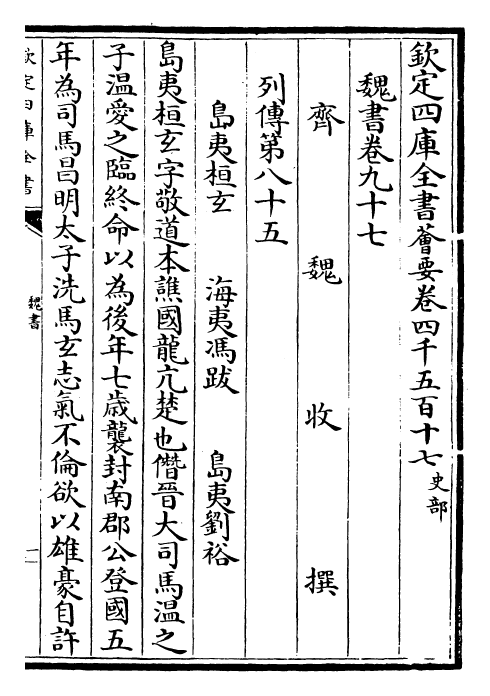 欽定四庫全書薈要卷四千五百十七 史部
魏書卷九十七
齊 魏 收 撰
列傳第八十五
島夷桓玄 海夷馮跋 島夷劉裕
島夷桓玄字敬道本譙國龍亢楚也僭晉大司馬温之
子温愛之臨終命以為後年七歲襲封南郡公登國五
年為司馬昌明太子洗馬玄志氣不倫欲以雄豪自許
欽定四庫全書
魏書
一